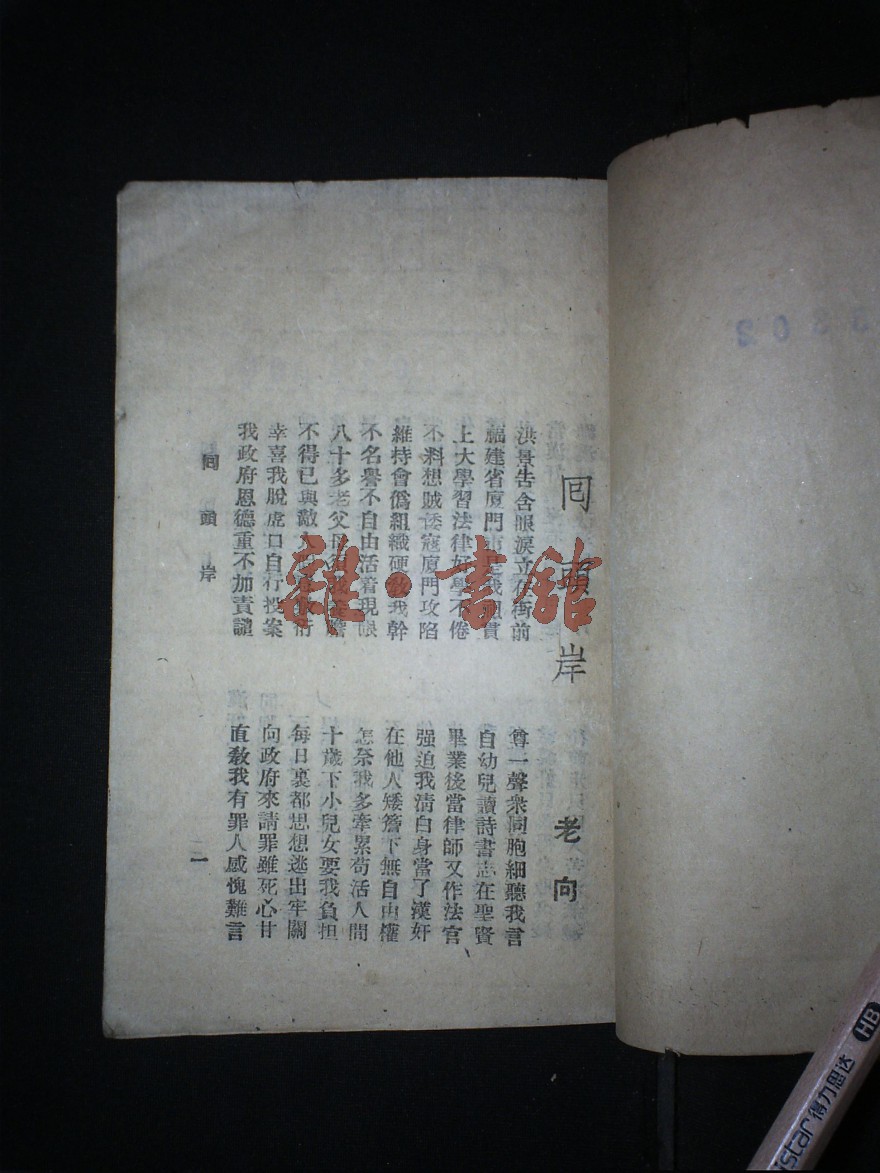 囘頭岸
老向
洪景告含眼淚立在街前 尊一聲衆同胞細聽我言
福建省廈門市是我祖貫 自幼兒讀詩書志在聖賢
上大學習法律好學不倦 畢業後當律師又作法官
不料想賊倭寇廈門攻陷 强迫我清白身當了漢奸
維持會僞組織硬教我幹 在他人矮簷下無自由權
不名譽不自由活着現眼 怎奈我多牽累苟活人間
八十多老父母 我 十歲下小兒女要我負担
不得已與敵人 敷衍 每日裏都思想逃出牢關
幸喜我脫虎口自行投案 向政府來請罪雖死心甘
我政府恩德重不加責譴 直教我有罪人感愧難言
囘頭岸
一
雜·書館
istar 得力思达 HB